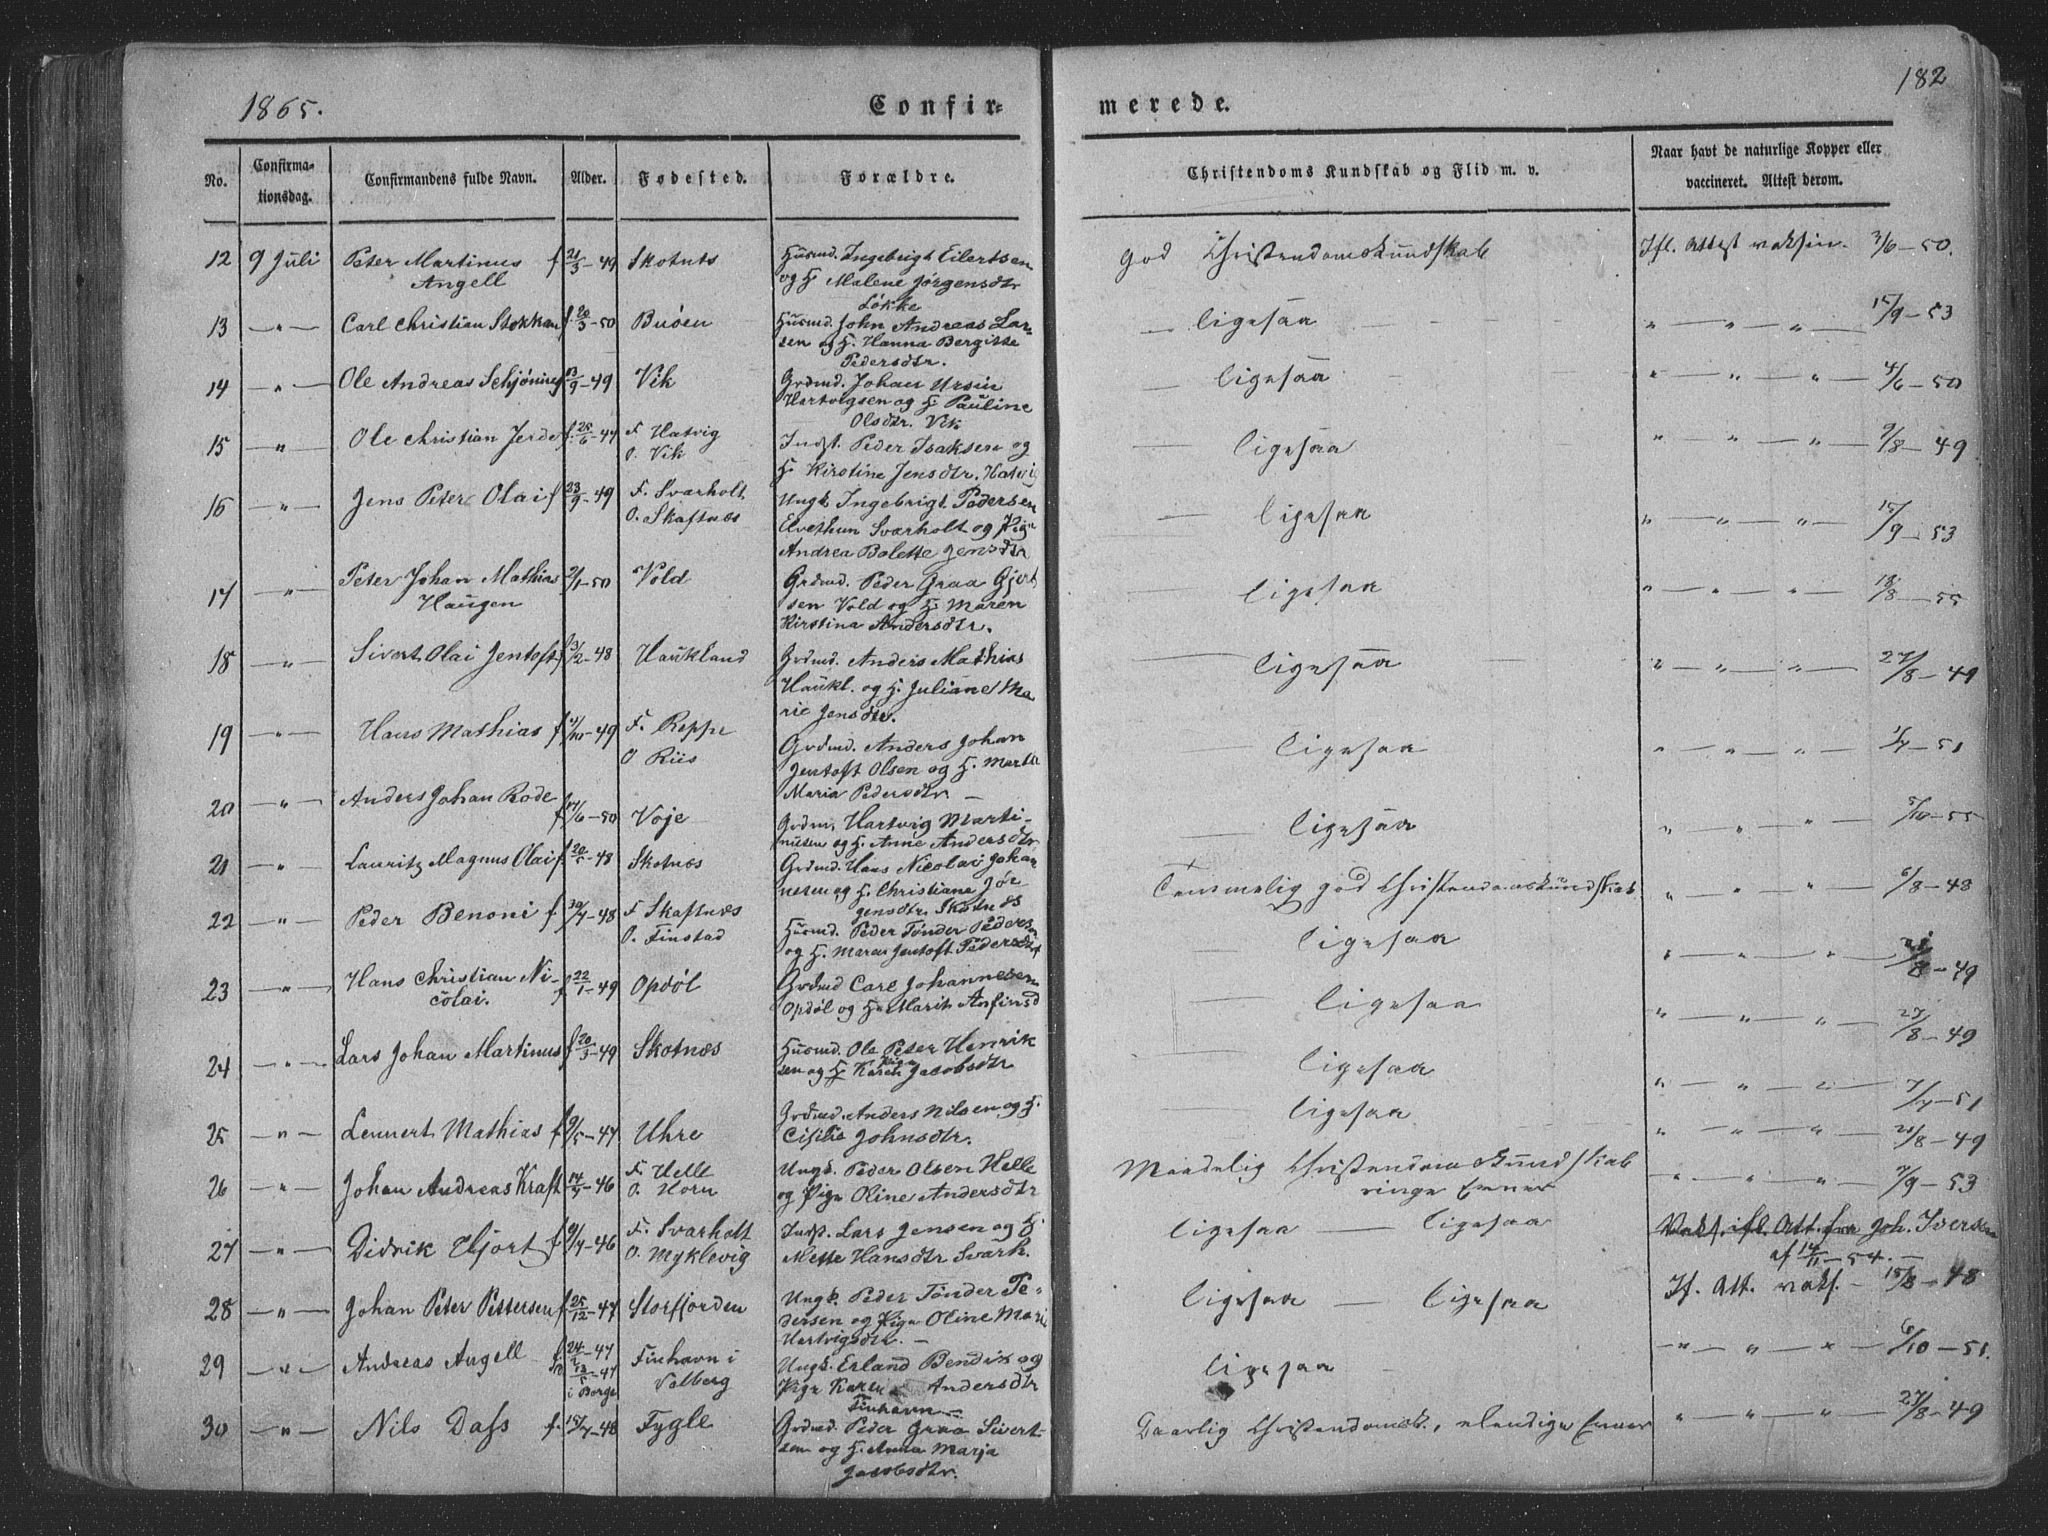 182
1865.
Confir-
merede.
No.
Confirma-
tionsdag.
Confirmandens fulde Navn.
Alder.
Fødested.
Forældre.
Christendoms Kundskab og Flid m. v.
Naar havt de naturlige Kopper eller
vaccineret. Attest derom.
12 9 Juli Peter Martinus f 21/3-49 Skotnæs Husmd. Ingebrigt Eilertsen God Christendomskundskab Ifl. Attest vaksin. 3/6-50.
Angell og H. Malene Jørgensdtr
Løkke
13 —"— Carl Christian Stokkan f. 20/3-50 Buøen Husmd. John Andreas Lar- — ligesaa " — " — " — 15/9-53
sen og H. Hanna Bergitte
Pedersdtr.
14 " — Ole Andreas Schjøning 13/9-49 Vik Grdmd. Johan Ursin — ligesaa " — " — " — 4/6-50
Hartvigsen og H. Pauline
Olsdtr. Vik
15 " Ole Christian Jerde f. 25/6-47 F. Hatvig Indst. Peder Isaksen og — ligesaa " — " — " — 9/8-49
O. Vik H. Kirstine Jensdtr. Hatvig
16 —"— Jens Peter Olai f 23/9-49 F. Svarholt Ungk. Ingebrigt Pedersen — ligesaa " — " — " — 15/9-53
O. Skaftnæs Elvethun Svarholt og Pige
Andrea Bolette Jensdtr
17 —"— Peter Johan Mathias 2/1-50 Vold Grdmd. Peder Graa Gjert — ligesaa " — " — " — 18/8-55
Haugen sen Vold og H. Maren
Kirstina Andersdtr.
18 —"— Sivert Olai Jentoft f 3/2-48 Haukland Grdmd. Anders Mathias — ligesaa — " — " — " — 27/8-49
Haukl. og H. Juliane Ma
rie Jensdtr.
19 —"— Hans Mathias f /10-49 F. Reppe Grdmd. Anders Johan — ligesaa " — " — " — 1/7-51
O Riis Jentoft Olsen og H. Martha
Maria Pedersdtr. —
20 —"— Anders Johan Rode f 17/6-50 Voje Grdm. Hartvig Marti- — ligesaa " — " — " — 5/10-55
nussen og H. Anne Andersdtr
21 —"— Lauritz Magnus Olai f 20/5-48 Skotnæs Grdmd. Hans Nicolai Johan Temmelig god Christendomskundskab " — " — " — 6/8-48
nesen og H. Christiane Jør
gensdtr. Skotnæs
22 —"— Peder Benoni f 30/4-48 F. Skaftnæs Husmd. Peder Tønder Pedersen — ligesaa " — " — " — /8-49
O. Finstad og H. Maren Jentoft Pedersdtr
23 —"— Hans Christian Ni- f 22/1-49 Opdøl Grdmd Carl Johannesen — ligesaa " — " — " — 27/8-49
colai. Opdøl og H. Marit Anfinsd
24 —"— Lars Johan Martinus f 20/3-49 Skotnæs Husmd. Ole Peter Henrik — ligesaa " — " — " — 7/7-51
sen og H. Pige Karen Jacobsdtr
25 —"— Lennert Mathias f 9/5-47 Uhre Grdmd. Anders Nilsen og H. — ligesaa " — " — " — /8-49
Cisilie Johnsdtr.
26 —"— Johan Andreas Kraft 14/4-46 F. Helle Ungk. Peder Olsen Helle Maadelig Christendomskundskab " — " — " — 7/9-53
O. Horn og Pige Oline Andersdtr ringe Evner
27 —"— Didrik Hjort f 9/7-46 F. Svarholt Indst. Lars Jensen og H. ligesaa — ligesaa Vaks. ifl. Att. fra Joh. Iversen
O. Myklevig Mette Hansdtr Svarh. af 14/11-54. —
28 —"— Johan Peter Pettersen f 25/12-47 Storfjorden Ungk. Peder Tønder Pe- ligesaa — ligesaa If. Att. vaks. — 15/8-48
dersen og Pige Oline Mari
Hartvigsdtr. —
29 —"— Andreas Angell f. 24/2-47 Finhavn i Ungk. Erland Bendix og ligesaa — " — " — 6/10-51.
13/5-47 Valberg Pige Karen Andersdtr
i Borge Finhavn —
30 —"— Nils Dass f. 15/7-48 Fygle Grdmd. Peder Graa Sivert- Daarlig Christendomsk., elendige Evner " — " — " — 27/8-49
sen og H. Anna Marja
Jacobsdtr.